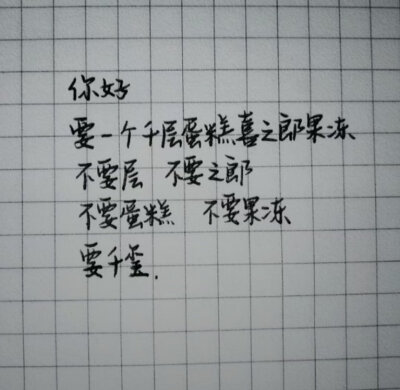 你好
要一个千层蛋糕喜之郎果冻
不要层 不要之郎
不要蛋糕 不要果冻
要千玺.